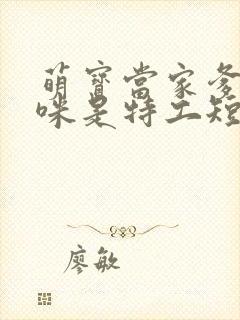 萌寶當家爹
咪是特工短
廖敏